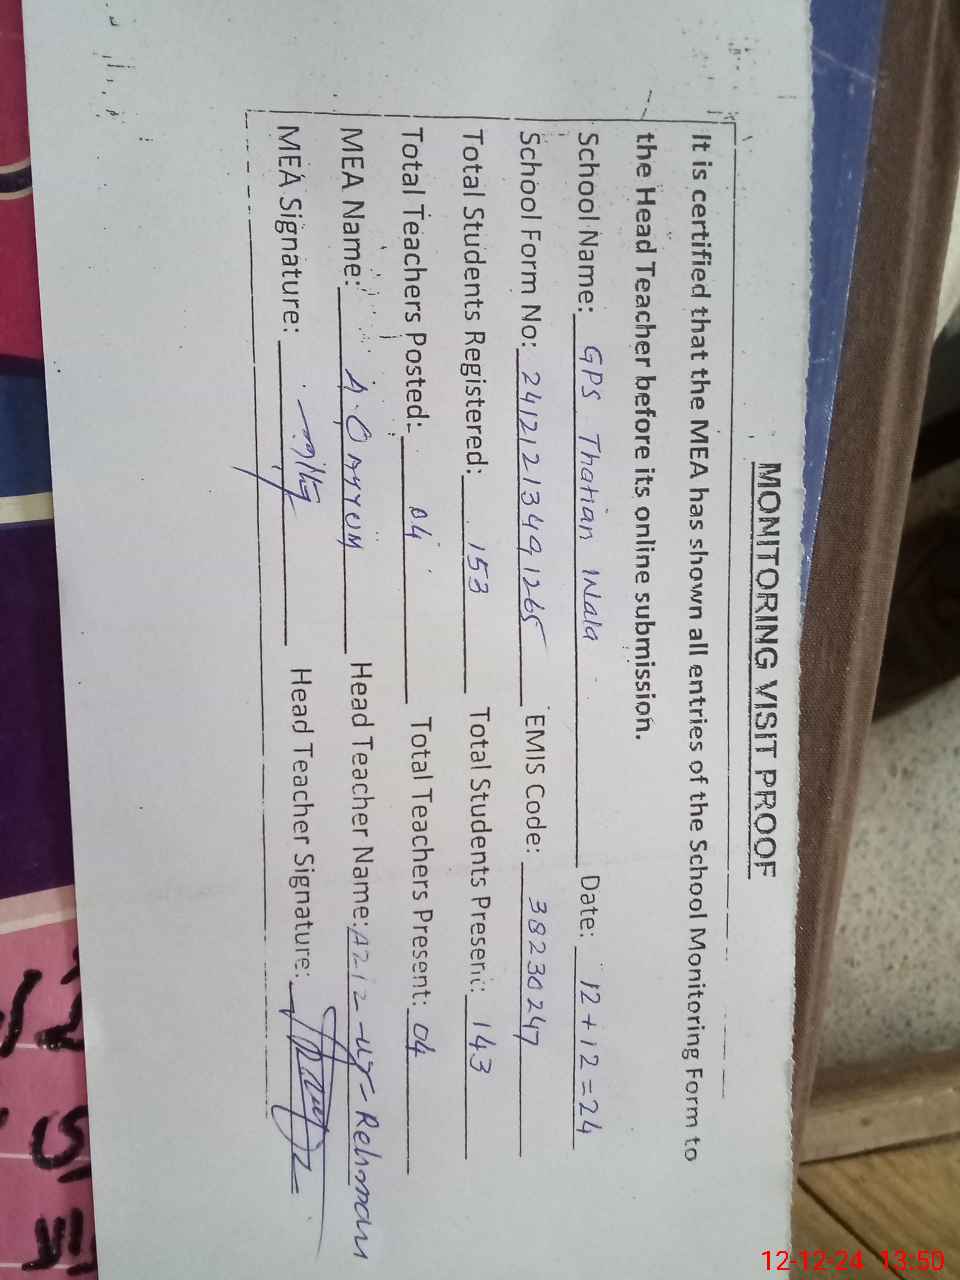 MONITORING VISIT PROOF
It is certified that the MEA has shown all entries of the School Monitoring Form to
the Head Teacher before its online submission.
School Name: GPS Thatian Wala Date: 12+12=24
School Form No: 2412121349 1265 EMIS Code: 38230247
Total Students Registered: 153 Total Students Present: 143
Total Teachers Posted: 04 Total Teachers Present: 04
MEA Name: A.Qayyum Head Teacher Name: Aziz-ur-Rehman
MEA Signature: Head Teacher Signature:
12-12-24 13:50